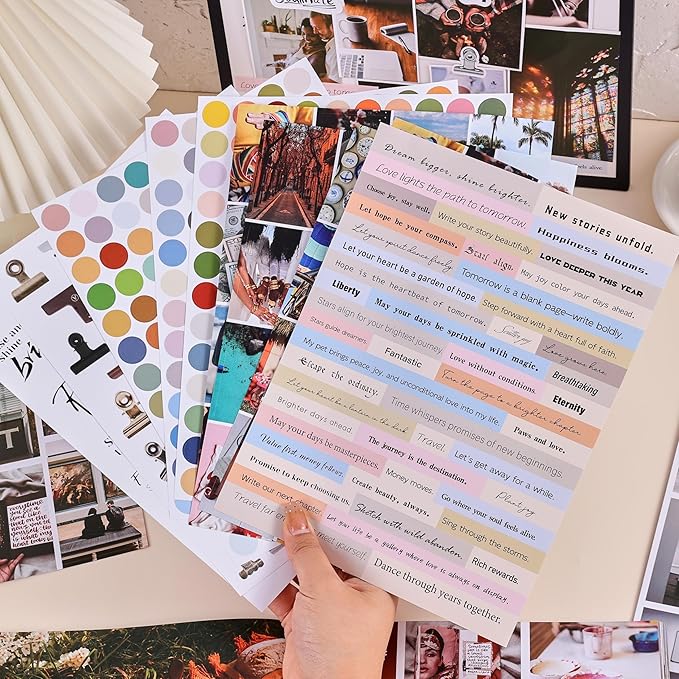 Soulmate
Dream bigger, shine brighter.
Love lights the path to tomorrow.
New stories unfold.
Choose joy, stay well.
Write your story beautifully.
Happiness blooms.
Let hope be your compass.
Star align.
LOVE DEEPER THIS YEAR
Let your spirit dance freely.
May joy color your days ahead.
Let your heart be a garden of hope.
Tomorrow is a blank page—write boldly.
Hope is the heartbeat of tomorrow.
Step forward with a heart full of faith.
Liberty
May your days be sprinkled with magic.
Stars align for your brightest journey.
Love grows here.
Stars guide dreamers.
Love without conditions.
Breathtaking
My pet brings peace, joy, and unconditional love into my life.
Fantastic
Turn the page to a brighter chapter.
Eternity
Escape the ordinary.
Time whispers promises of new beginnings.
Paws and love.
Brighter days ahead.
Travel.
Let's get away for a while.
May your days be masterpieces.
The journey is the destination.
Value first, money follows.
Money moves.
Go where your soul feels alive.
Promise to keep choosing us.
Create beauty, always.
Sing through the storms.
Write our next chapter.
Sketch with wild abandon.
Rich rewards.
Travel far
meet yourself.
Let your life be a gallery where love is always on display.
Dance through years together.